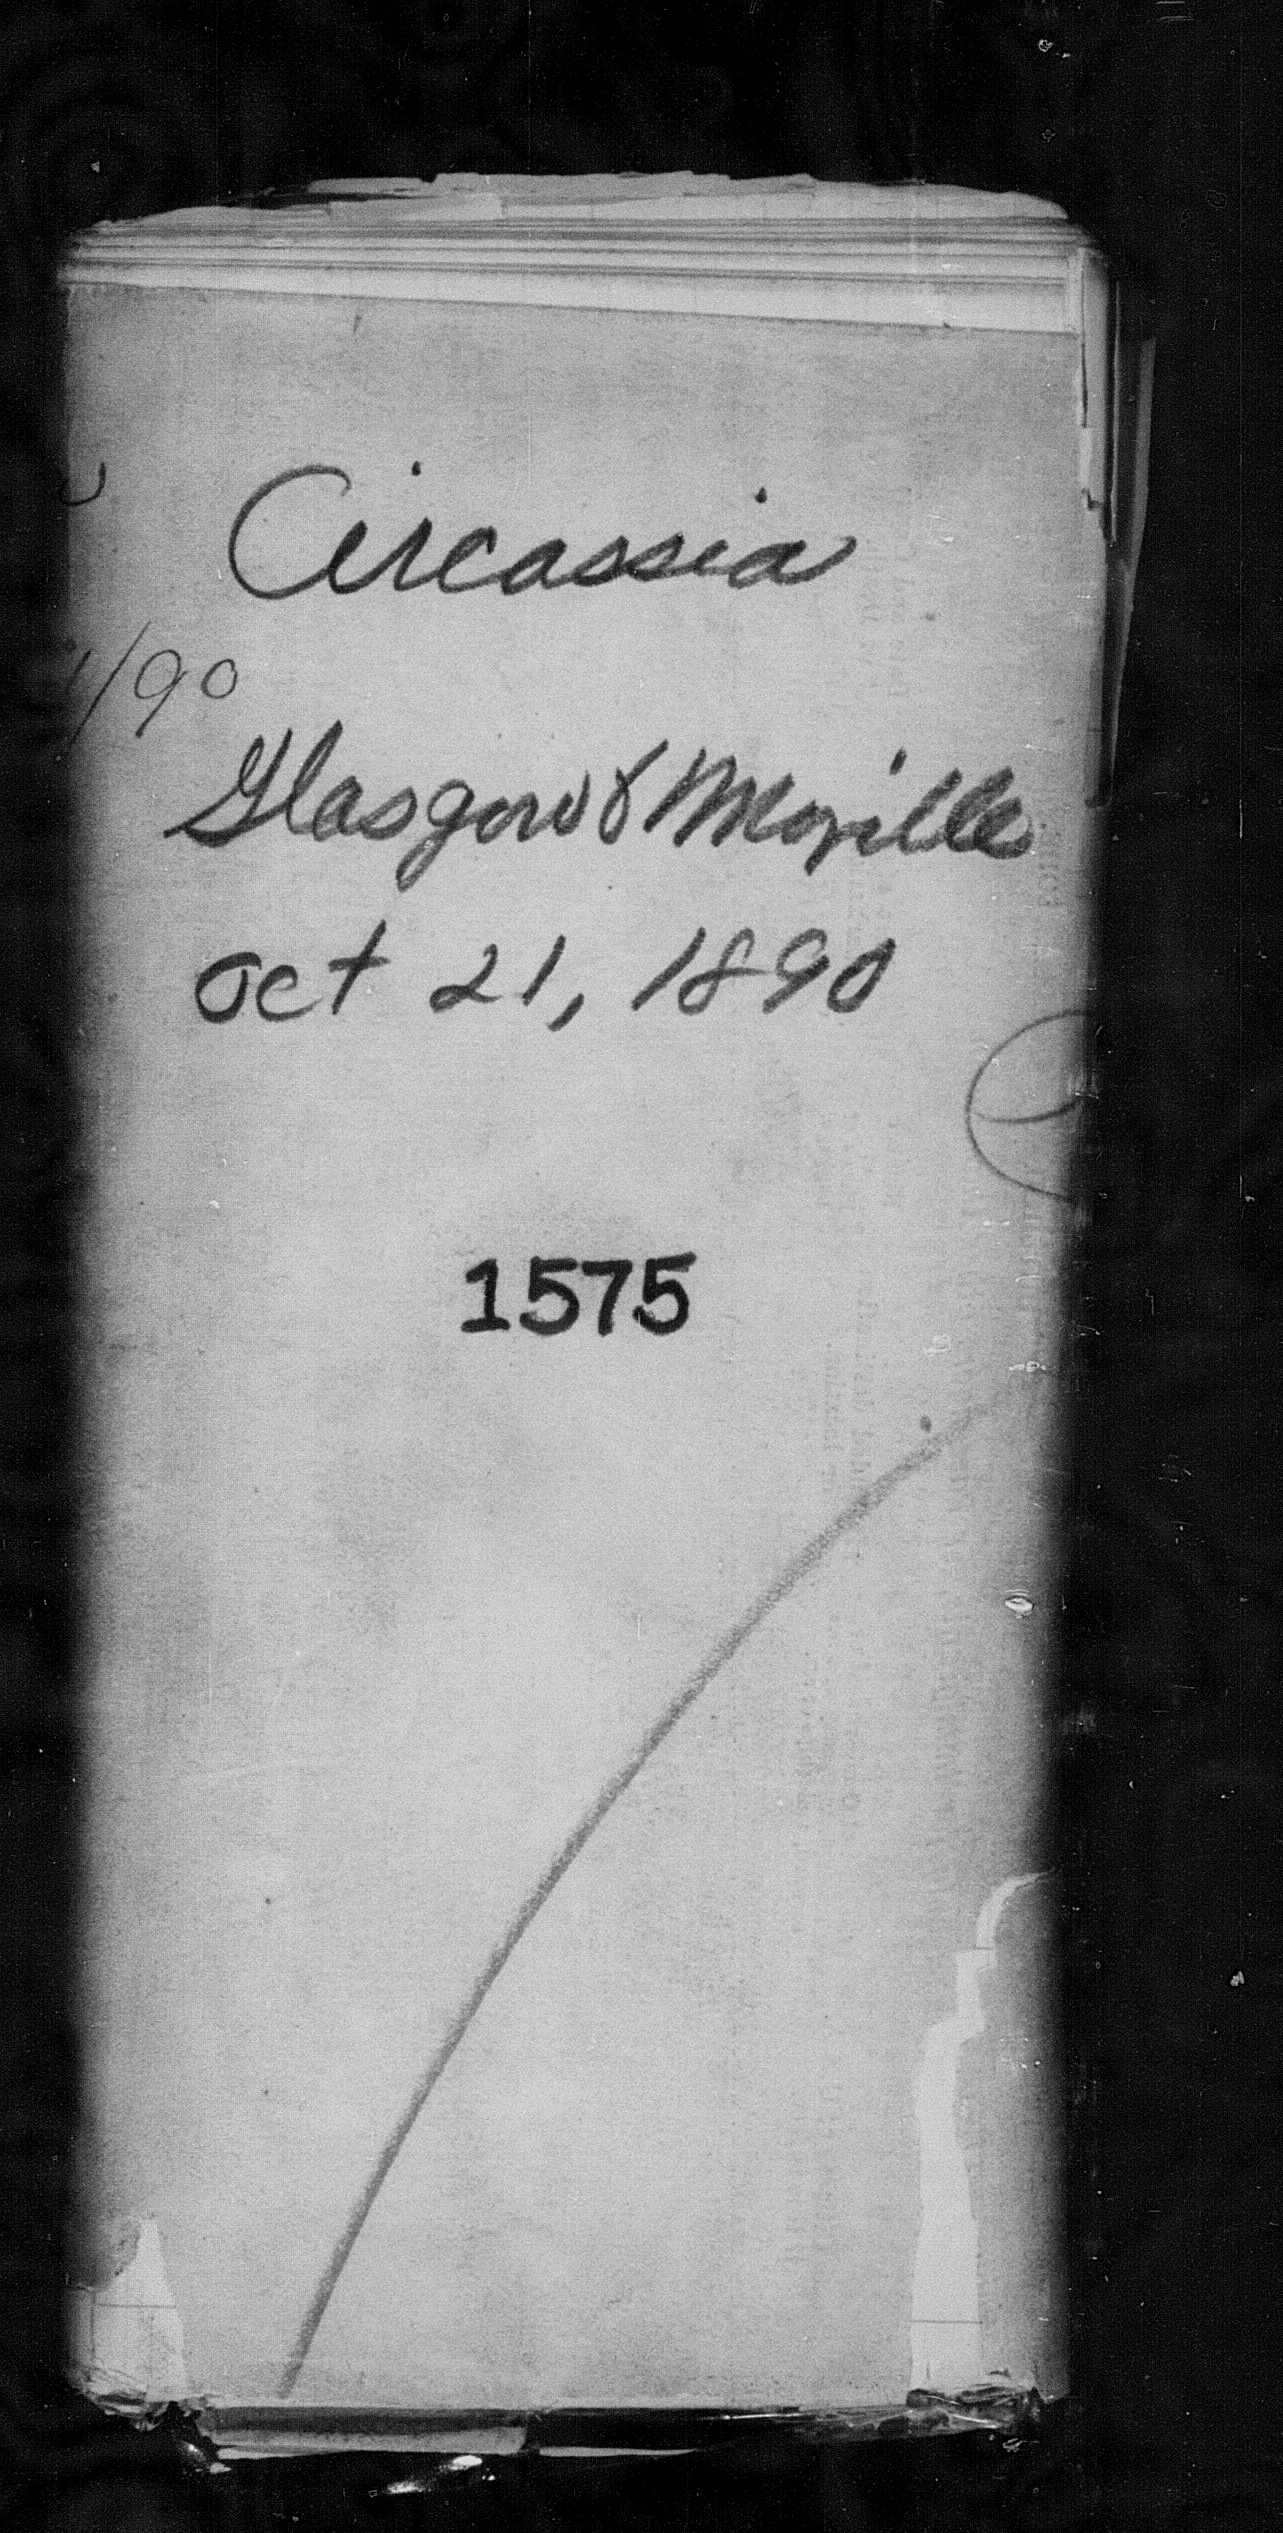 Circassia
/90
Glasgow & Moville
Oct 21, 1890
1575